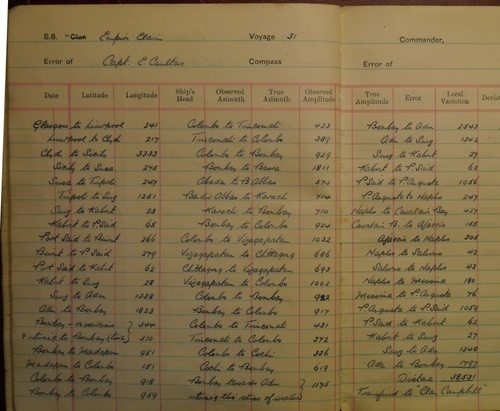 S.S. "Clan Empire Elaine Voyage 31 Commander,
Error of Capt. E Coultas Compass Error of
Date Latitude Longitude Ship's Head Observed Azimuth True Azimuth Observed Amplitude True Amplitude Error Local Variation
Glasgow to Liverpool 241 Colombo to Trincomali 423 Bombay to Adn 2543
Liverpool to Clyd 217 Trincomali to Colombo 389 Adn to Suez 1342
Clyd to Sicily 3333 Colombo to Bombay 929 Suez to Kabrit 27
Sicily to Susa 275 Bombay to Basra 1811 Kabrit to P. Said 62
to Tripoli 247 Abada to B. Abbas 570 P. Said to P. Augusta 1056
Tripoli to Suez 1251 Bandar Abbas to Karachi 714 P. Augusta to Naples 247
Suez to Kabrit 23 Karachi to Bombay 710 Naples to Bay 427
Kabrit to P. Said 65 Bombay to Colombo 924 B. to Ajaccio 155
Port Said to Beirut 266 Colombo to Vizagapatam 1022 Ajaccio to Naples 305
Beirut to P. Said 279 Vizagapatam to Chittagong 686 Naples to Salerno 42
Port Said to Kabrit 62 Chittagong to Vizagapatam 693 Salerno to Naples 43
Kabrit to Suez 28 Vizagapatam to Colombo 1002 Naples to Messina 180
Suez to Adn 1338 Colombo to Bombay 922 Messina to P. Augusta 76
Adn to Bombay 1823 Bombay to Colombo 917 P. Augusta to P. Said 1059
Bombay - } 344 Colombo to Trincomali 431 P. Said to Kabrit 62
to Bombay } 310 Trincomali to Colombo 372 Kabrit to Suez 27
Bombay to Madapam 951 Colombo to Cochi 326 Suez to Adn 1340
Madapam to Colombo 151 Cochi to Bombay 619 Adn to Bombay 1797
Colombo to Bombay 918 Bombay towards Adn } 1175 Distance 38531
Bombay to Colombo 959 this Transferred to "Clan Campbell"